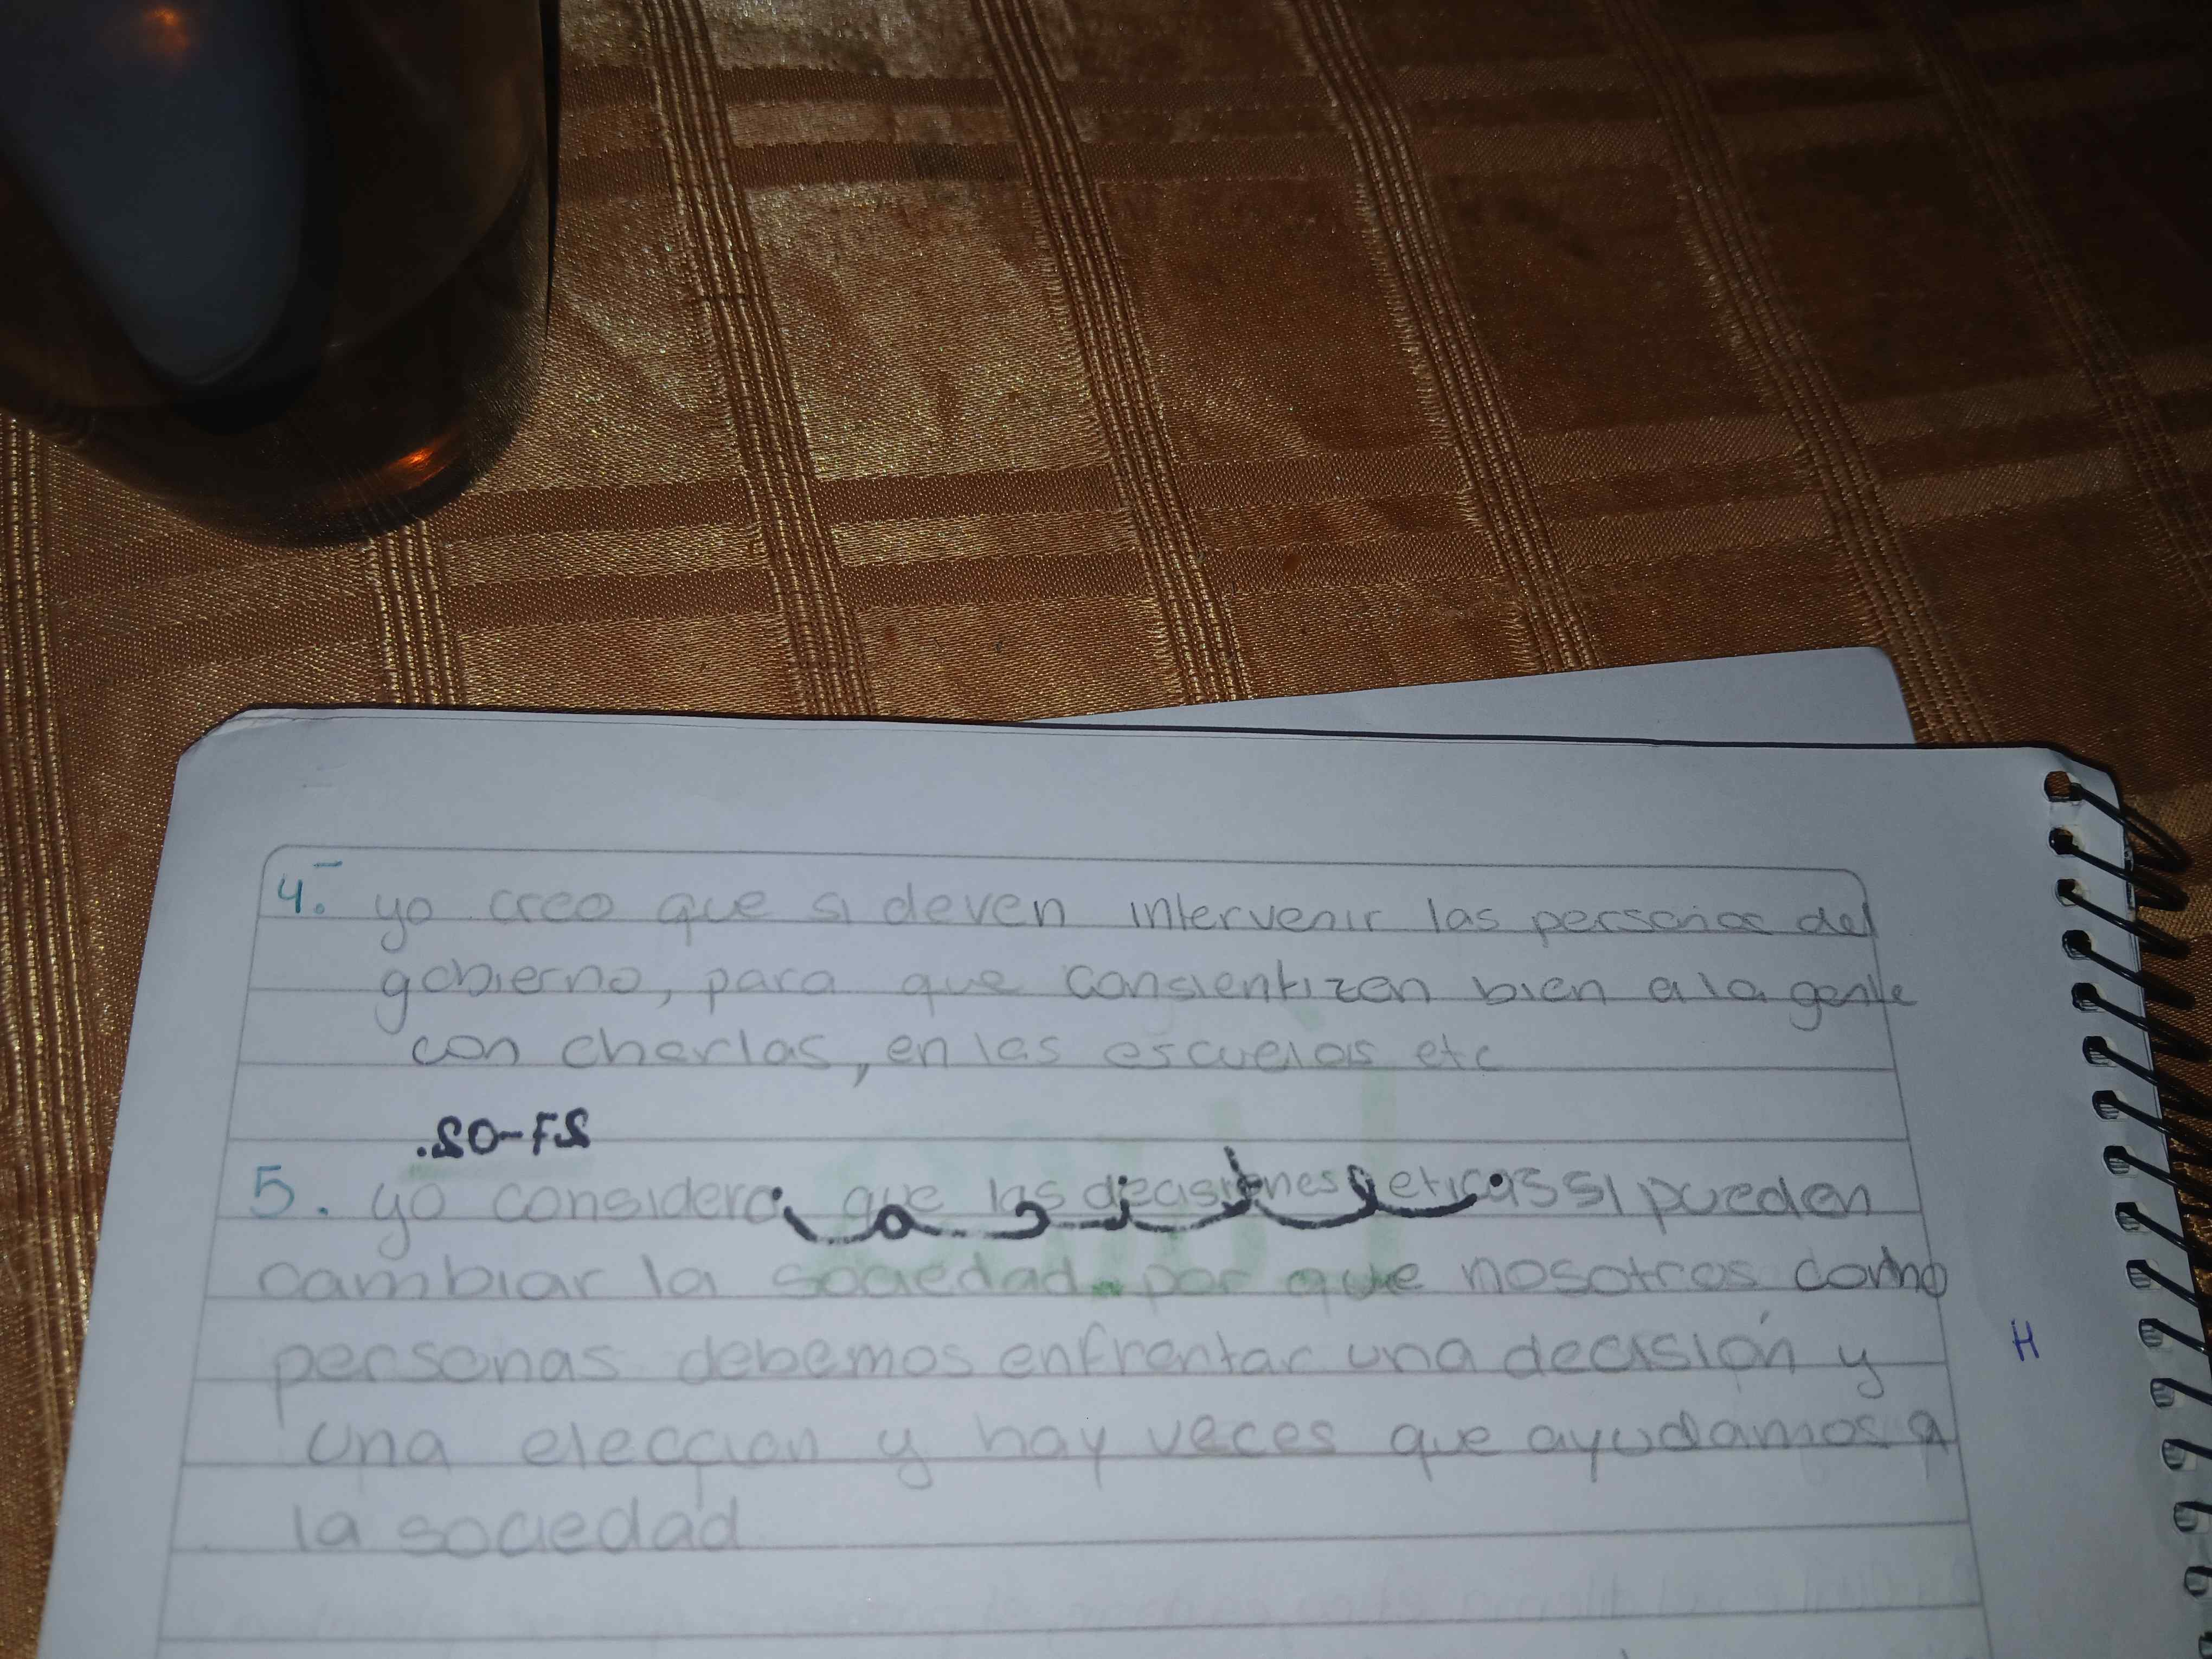 4.- yo creo que si deven intervenir las personas del
gobierno, para que consientizen bien a la gente
con charlas, en las escuelas etc
5. yo considero que las decisiones eticas si pueden
cambiar la sociedad por que nosotros como
personas debemos enfrentar una decisión y
una elección y hay veces que ayudamos a
la sociedad
H